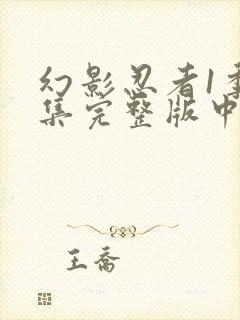 幻影忍者1季
集完整版中
王乔